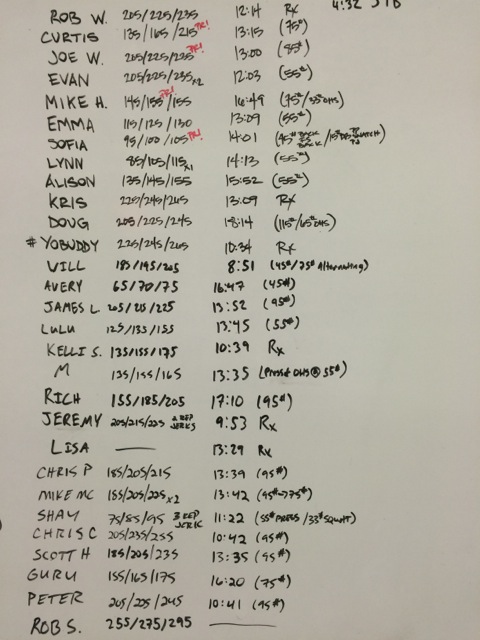 4:32 JTB
ROB W. 205/225/235 12:14 Rx
CURTIS 135/165/215 PR! 13:15 (75#)
JOE W. 205/225/235 PR! 13:00 (85#)
EVAN 205/225/235x2 12:03 (55#)
MIKE H. 145/155/155 PR! 16:49 (75#/35# OHS)
EMMA 115/125/130 13:09 (55#)
SOFIA 95/100/105 PR! 14:01
LYNN 85/105/115x1 14:13 (55#)
ALISON 135/145/155 15:52 (55#)
KRIS 225/245/265 13:09 Rx
DOUG 205/225/245 18:14 (115#/65# OHS)
# YOBUDDY 225/245/265 10:34 Rx
WILL 185/195/205 8:51 (45#/75# Alternating)
AVERY 65/70/75 16:47 (45#)
JAMES L 205/215/225 13:52 (95#)
LULU 125/135/155 13:45 (55#)
KELLI S. 135/155/175 10:39 Rx
M 135/155/165 13:35 (Press & OHS @ 55#)
RICH 155/185/205 17:10 (95#)
JEREMY 205/215/225 2 REP JERKS 9:53 Rx
LISA — 13:29 Rx
CHRIS P 185/205/215 13:39 (95#)
MIKE MC 155/205/225x2 13:42 (95#→75#)
SHAY 75/85/95 3 REP JERK 11:22 (55# PRESS/33# SQUAT)
CHRIS C 205/235/255 10:42 (95#)
SCOTT H 185/205/235 13:35 (95#)
GURU 155/165/175 16:20 (75#)
PETER 205/225/245 10:41 (95#)
ROB S. 255/275/295 —